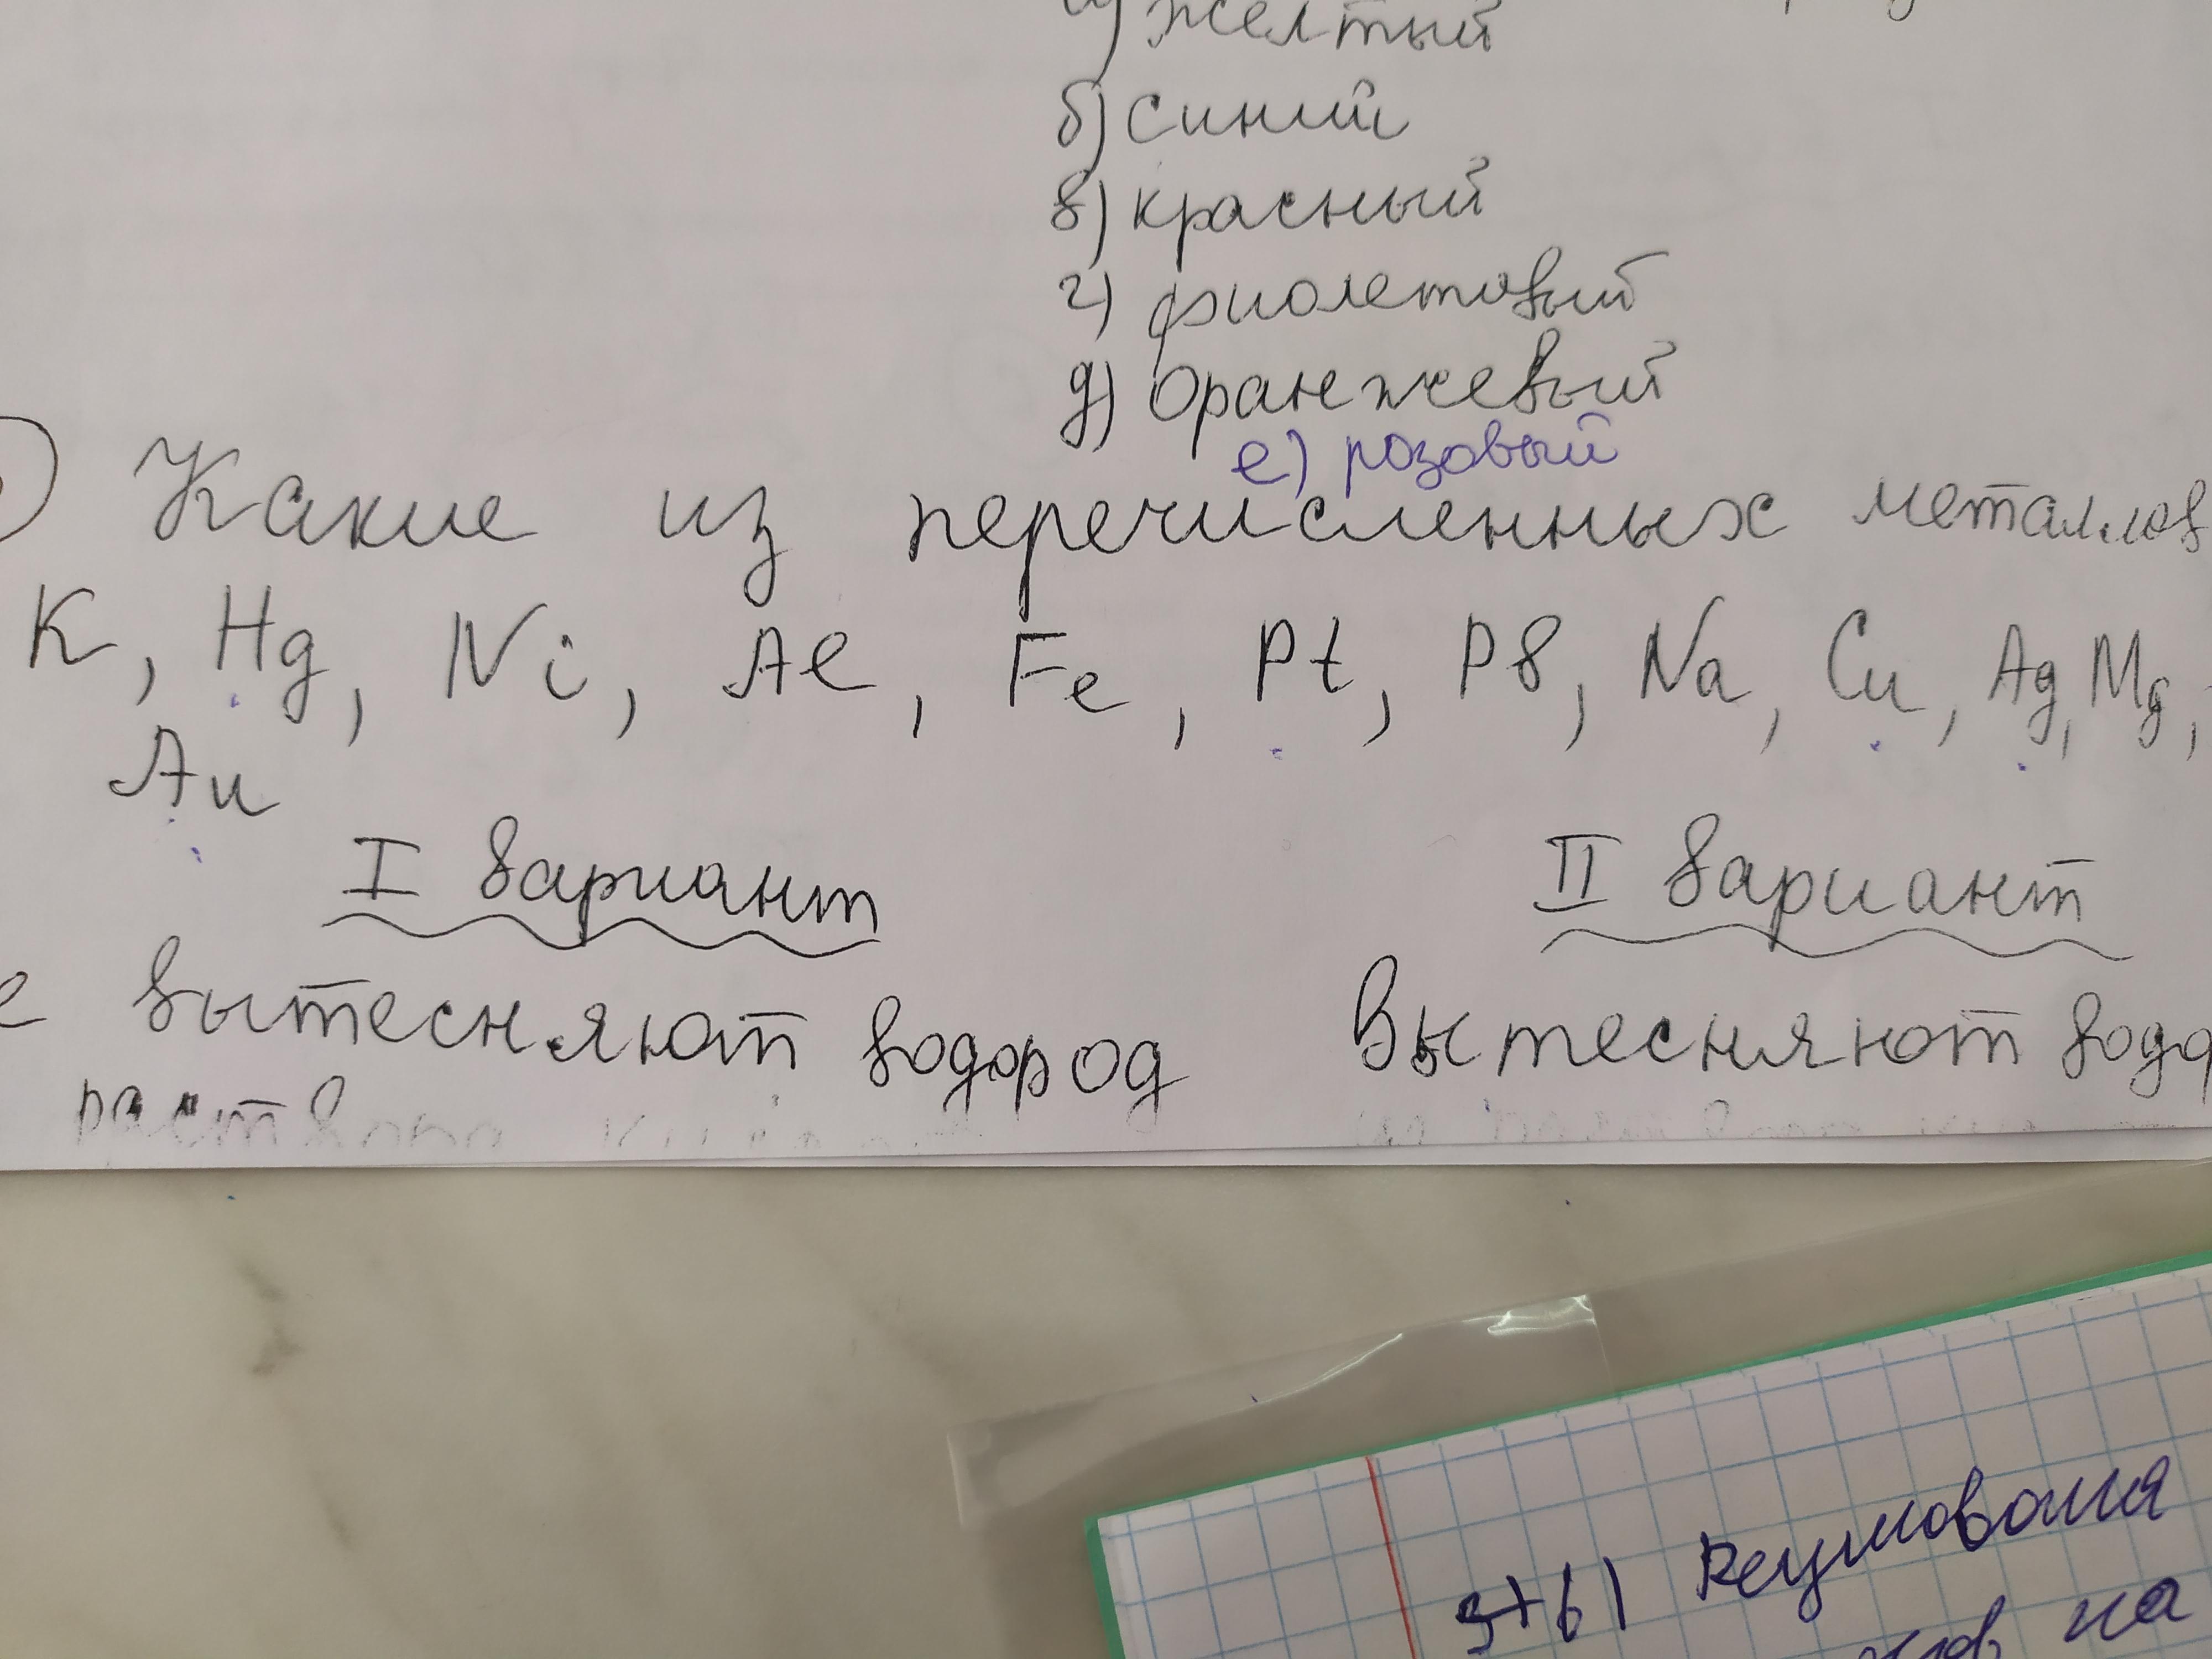 а) желтый
б) синий
в) красный
г) фиолетовый
д) оранжевый
е) розовый
Какие из перечисленных металлов
K, Hg, Ni, Al, Fe, Pt, Pb, Na, Cu, Ag, Mg,
Au
I вариант
II вариант
е вытесняют водород
Вытесняют водо
раствора кислот
из раствора
на